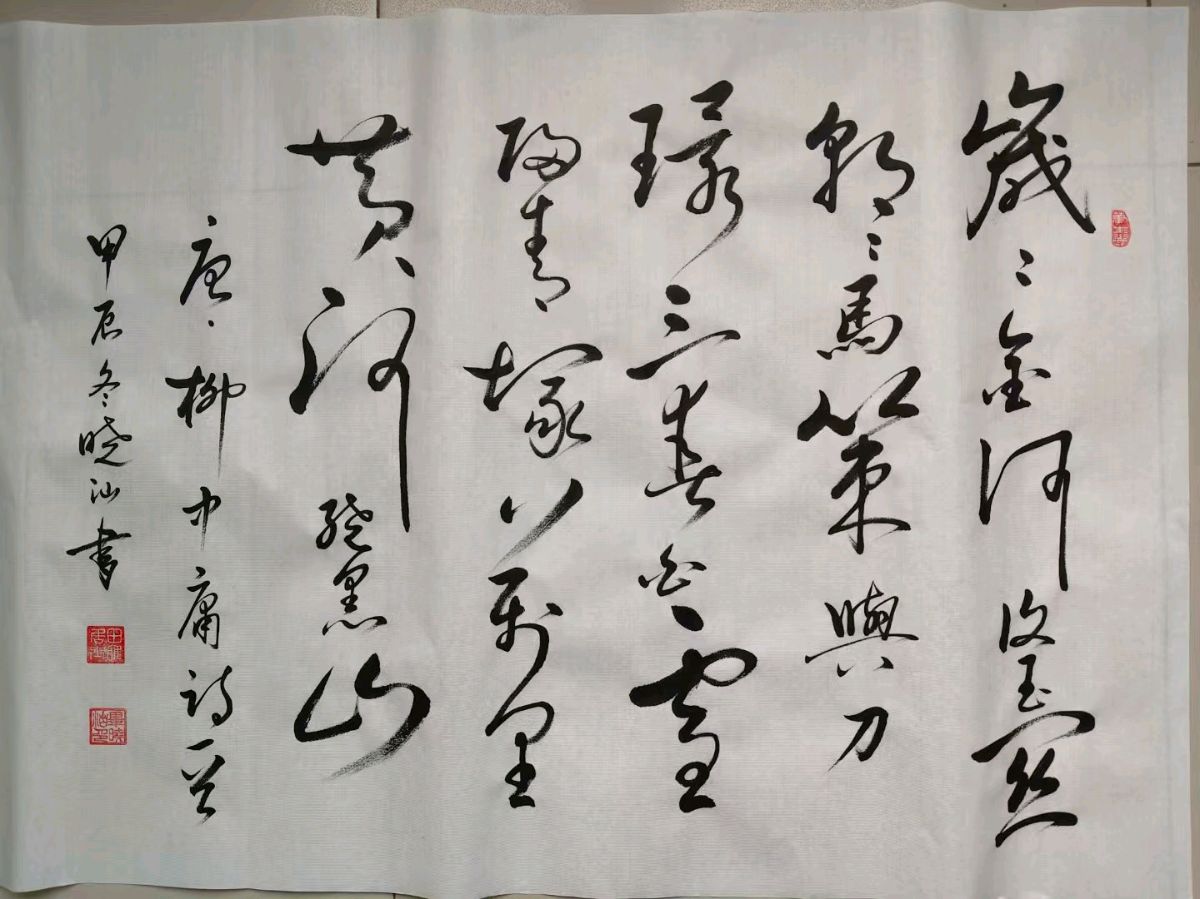 歲〻金河復玉關
朝〻馬策與刀
環三春白雪
歸青塚萬里
黃河繞黑山
唐·柳中庸詩一首
甲辰冬晓汕書